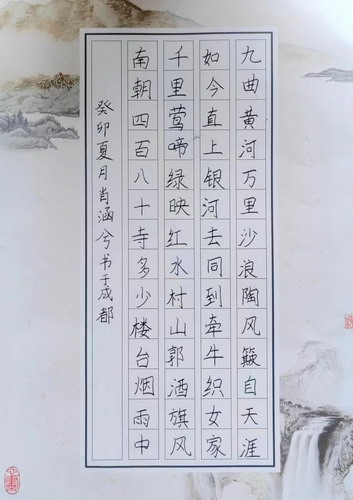 九曲黄河万里沙浪陶风簸自天涯
如今直上银河去同到牵牛织女家
千里莺啼绿映红水村山郭酒旗风
南朝四百八十寺多少楼台烟雨中
癸卯夏月肖涵兮书于成都